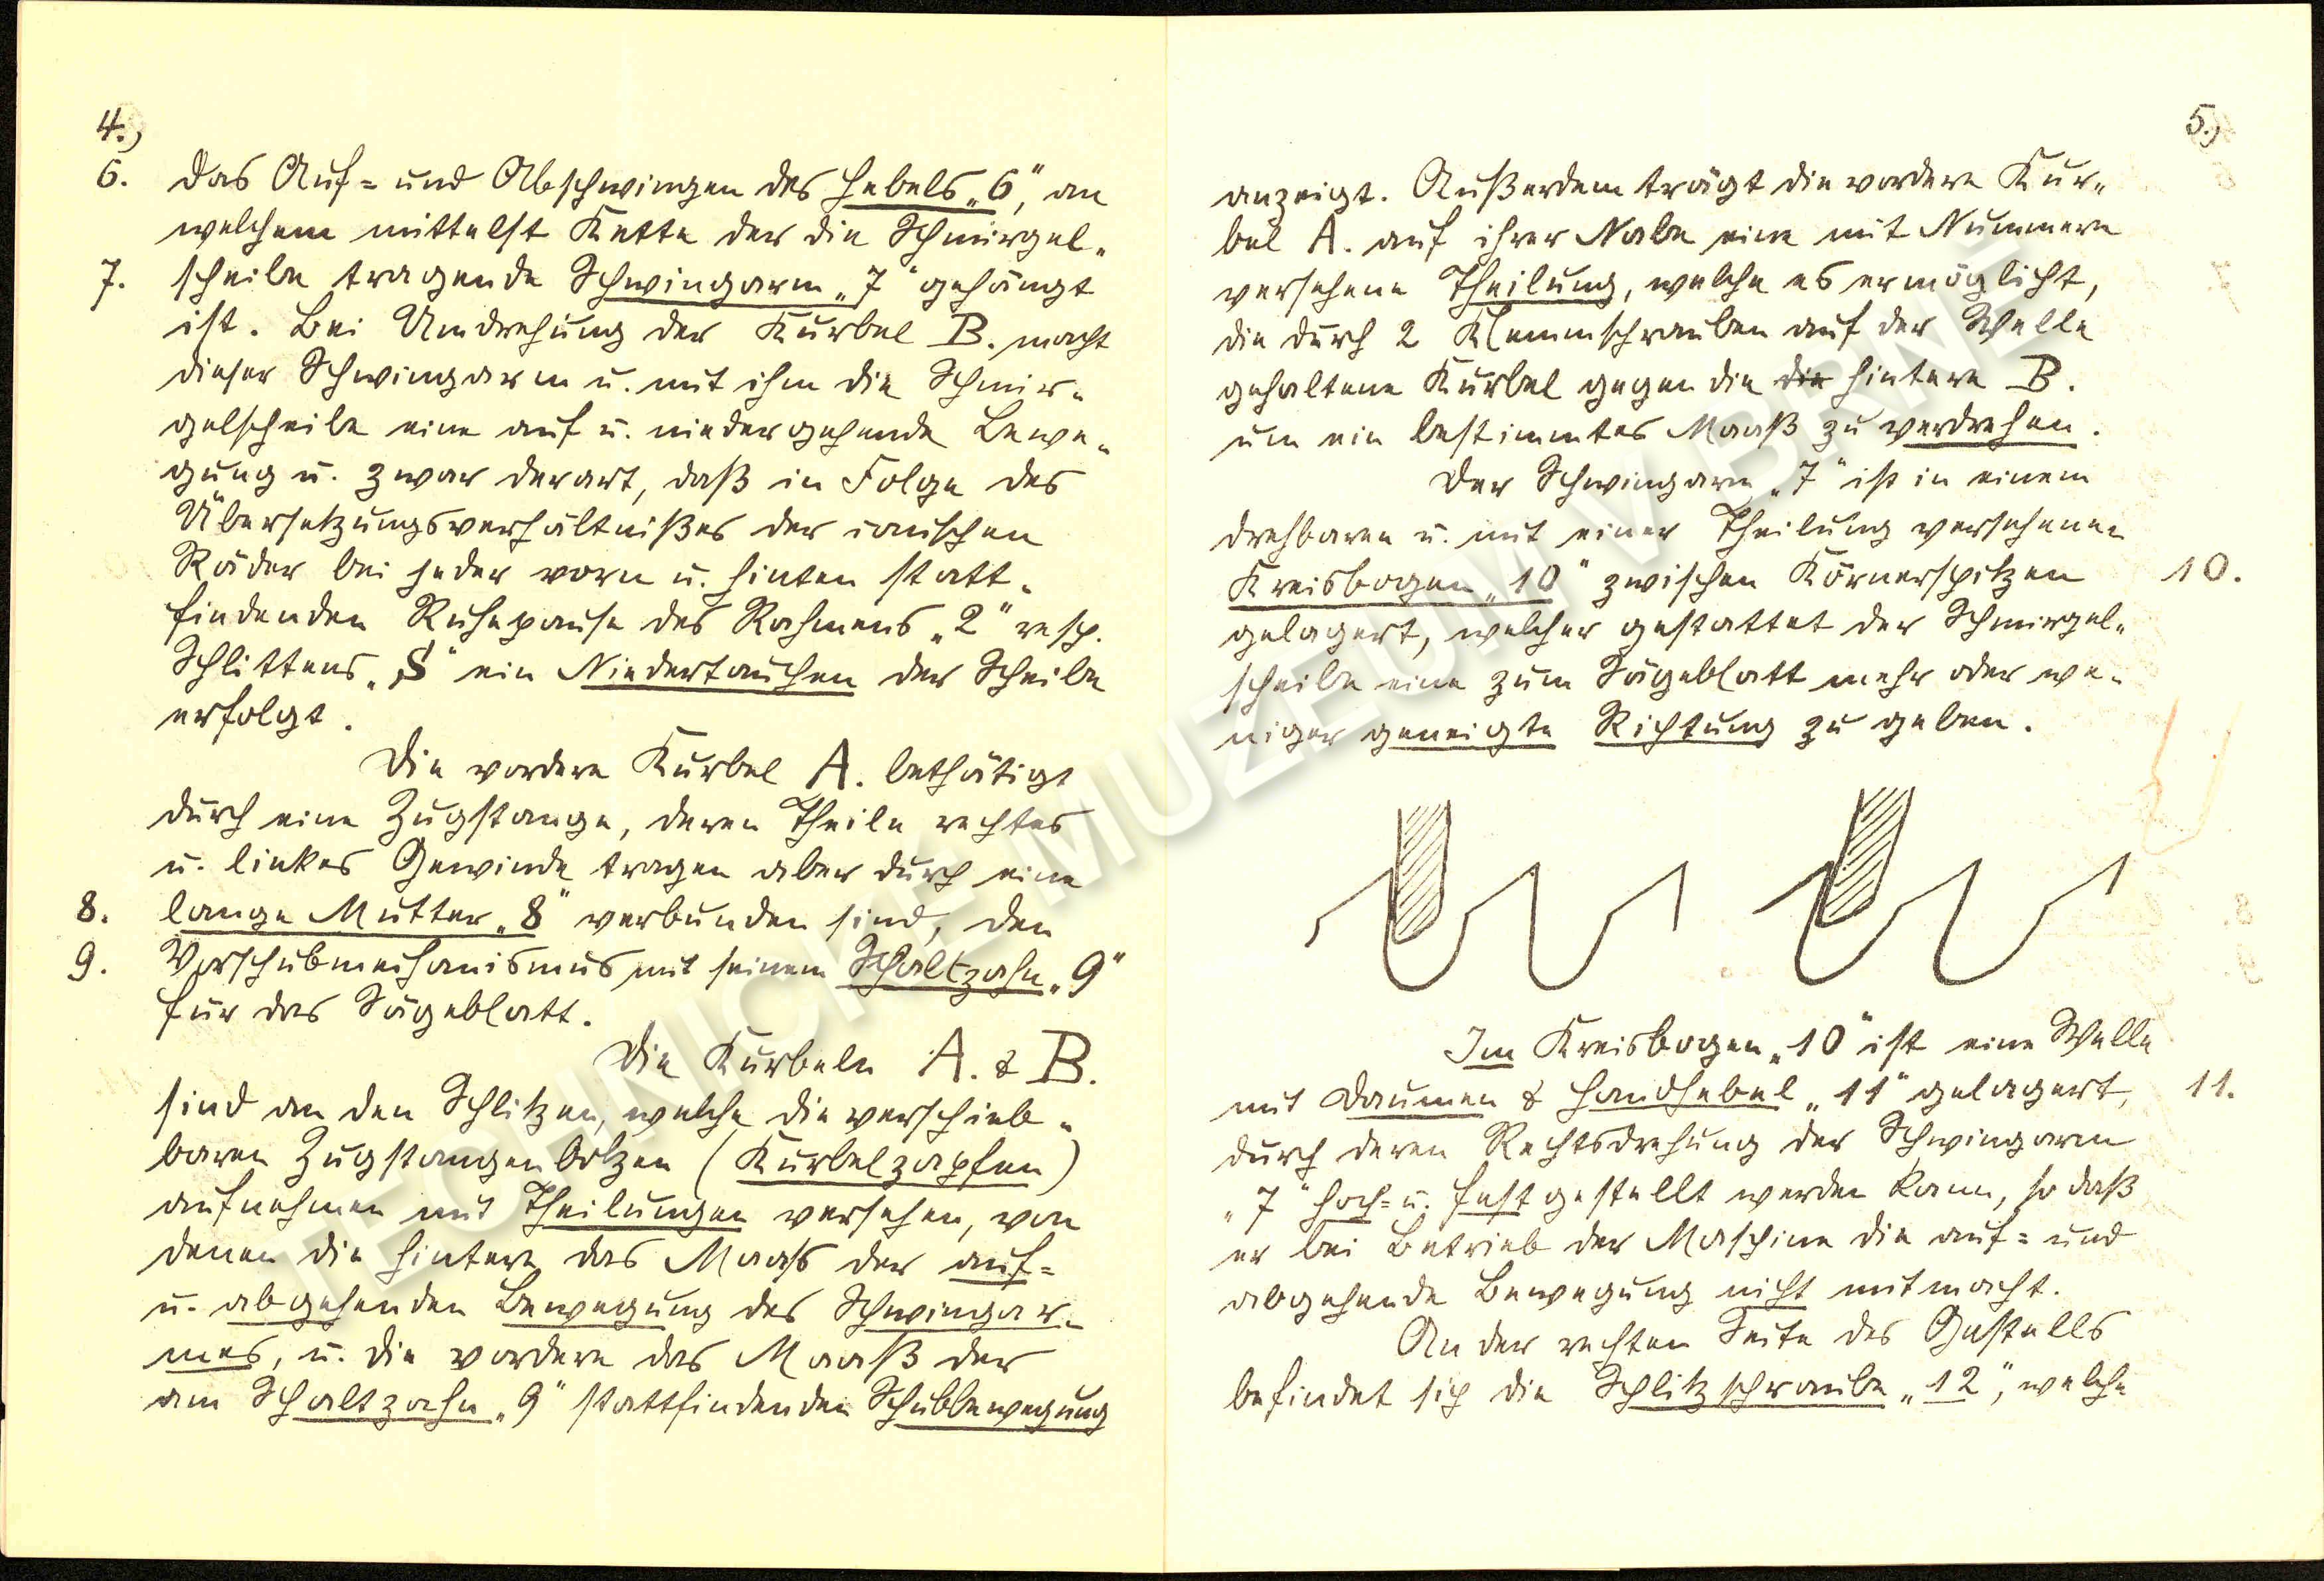 4.)
6. Das Auf= und Abschwingen des Hebels „6“, an
welchem mittelst Kette der die Schmirgel-
7. scheibe tragende Schwingarm „7“ gehängt
ist. Bei Umdrehung der Kurbel B. macht
dieser Schwingarm u. mit ihm die Schmir-
gelscheibe eine auf u. niedergehende Bewe-
gung u. zwar derart, daß in Folge des
Übersetzungsverhältnißes der conischen
Räder bei jeder vorn u. hinten statt-
findenden Ruhepause des Rahmens „2“ resp.
Schlittens „S“ ein Niedertauchen der Scheibe
erfolgt.
Die vordere Kurbel A. bethätigt
durch eine Zugstange, deren Theile rechtes
u. linkes Gewinde tragen aber durch eine
8. lange Mutter „8“ verbunden sind, den
9. Vorschubmechanismus mit seinem Schaltzahn „9“
für das Sägeblatt.
Die Kurbeln A. & B.
sind an den Schlitzen, welche die verschieb-
baren Zugstangenbolzen (Kurbelzapfen)
aufnehmen mit Theilungen versehen, von
denen die hintere das Maaß der auf=
u. abgehenden Bewegung des Schwingar-
mes, u. die vordere das Maaß der
am Schaltzahn „9“ stattfindenden Schubbewegung
5.)
anzeigt. Außerdem trägt die vordere Kur-
bel A. auf ihrer Nabe eine mit Nummern
versehene Theilung, welche es ermöglicht,
die durch 2 Klemmschrauben auf der Welle
gehaltene Kurbel gegen die die hintere B.
um ein bestimmtes Maaß zu verdrehen.
Der Schwingarm „7“ ist in einem
drehbaren u. mit einer Theilung versehenen
Kreisbogen „10“ zwischen Körnerspitzen 10.
gelagert, welcher gestattet der Schmirgel-
scheibe eine zum Sägeblatt mehr oder we-
niger geneigte Richtung zu geben.
Im Kreisbogen „10“ ist eine Welle
mit Daumen & Handhebel „11“ gelagert, 11.
durch deren Rechtsdrehung der Schwingarm
„7“ hoch= u. festgestellt werden kann, so daß
er bei Betrieb der Maschine die auf= und
abgehende Bewegung nicht mitmacht.
An der rechten Seite des Gestells
befindet sich die Schlitzschraube „12“, welche
TECHNICKÉ MUZEUM V BRNĚ